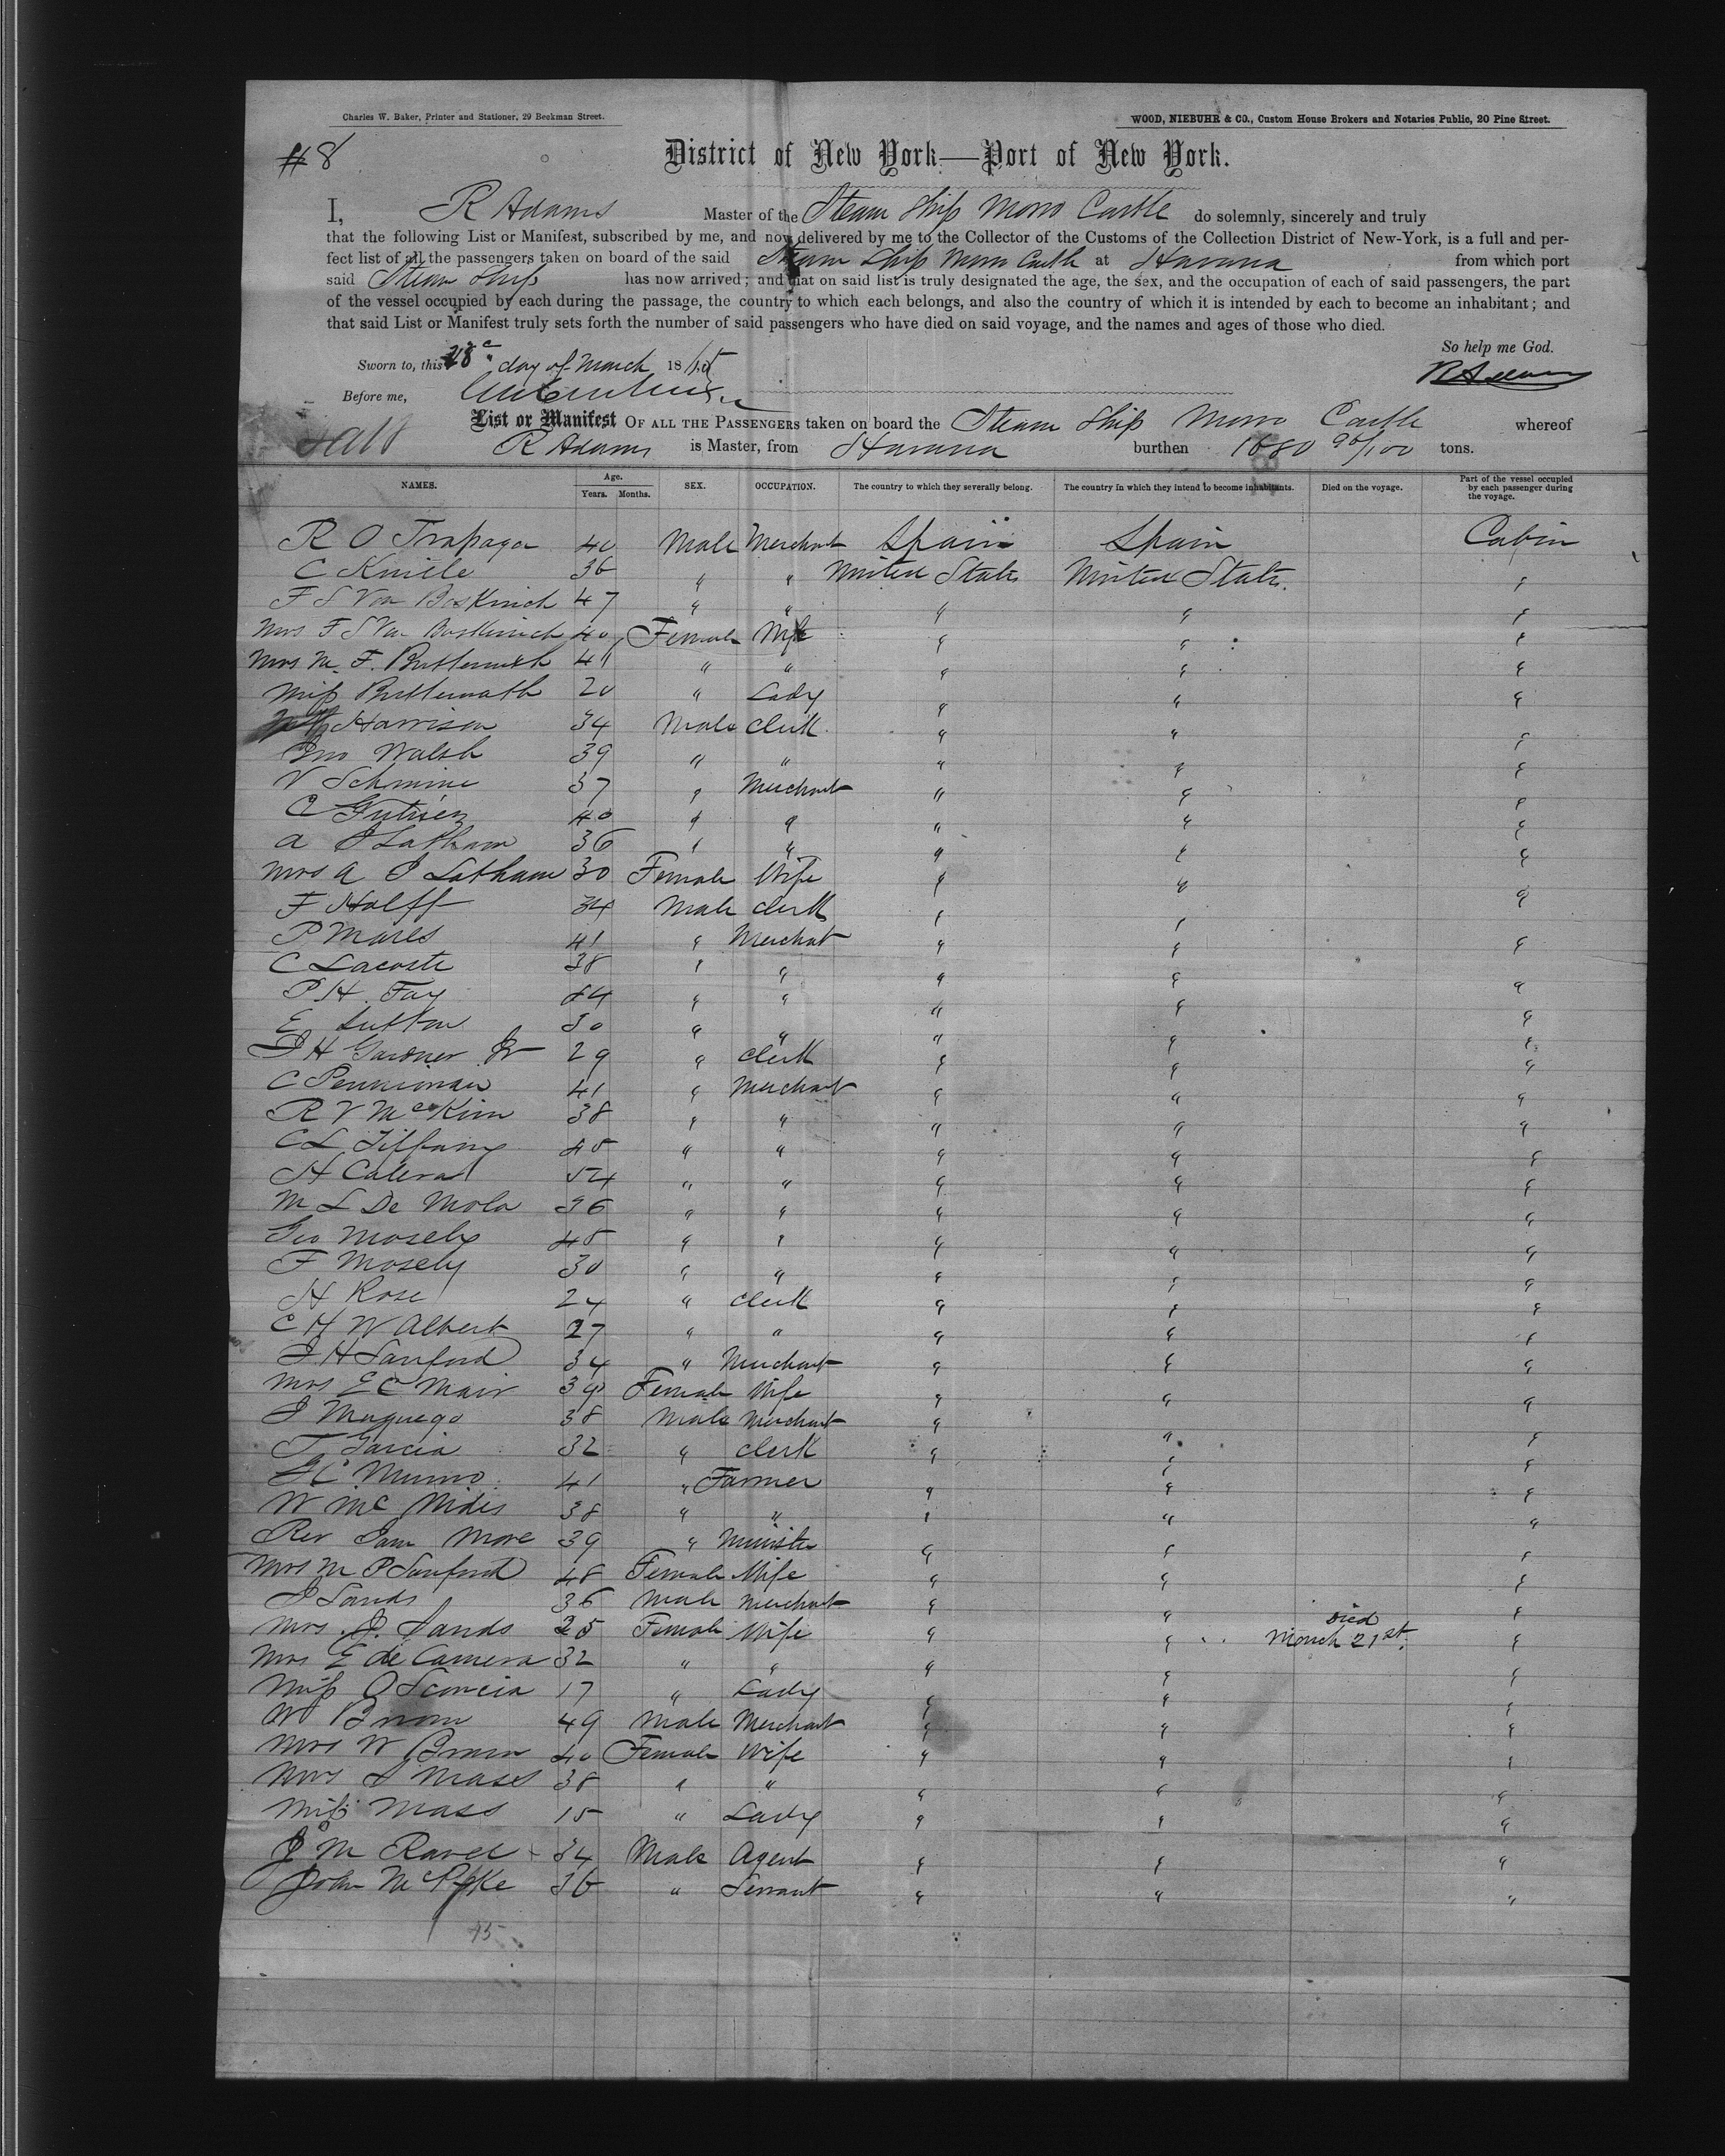 Charles W. Baker, Printer and Stationer, 29 Beekman Street.
WOOD, NIEBUHR & CO., Custom House Brokers and Notaries Public, 20 Pine Street.
#8
District of New York—Port of New York.
I, R Adams Master of the Steam Ship Morro Castle do solemnly, sincerely and truly
that the following List or Manifest, subscribed by me, and now delivered by me to the Collector of the Customs of the Collection District of New-York, is a full and per-
fect list of all the passengers taken on board of the said Steam Ship Morro Castle at Havana from which port
said Steam Ship has now arrived; and that on said list is truly designated the age, the sex, and the occupation of each of said passengers, the part
of the vessel occupied by each during the passage, the country to which each belongs, and also the country of which it is intended by each to become an inhabitant; and
that said List or Manifest truly sets forth the number of said passengers who have died on said voyage, and the names and ages of those who died.
So help me God.
Sworn to, this 28 day of March 18
R Adams
Before me,
List or Manifest OF ALL THE PASSENGERS taken on board the Steam Ship Morro Castle whereof
R Adams is Master, from Havana burthen 1680 96/100 tons.
NAMES. Age. Years. Months. SEX. OCCUPATION. The country to which they severally belong. The country in which they intend to become inhabitants. Died on the voyage. Part of the vessel occupied by each passenger during the voyage.
R O Trapaga 40 Male Merchant Spain Spain Cabin
C 36 " " United States United States "
F S Van Boskirich 47 " " " " "
Mrs F S Van Boskirich 40 Female Wife " " "
Mrs M. F. Butterworth 41 " " " " "
Miss Butterworth 20 " Lady " " "
Harrison 34 Male Clerk " " "
Jno Walsh 39 " " " " "
V Schmine 37 " Merchant " " "
C 40 " " " " "
A J Latham 36 " " " " "
Mrs A J Latham 30 Female Wife " " "
F Holff 34 Male Clerk " " "
P Mares 41 " Merchant " " "
C Lacoste 38 " " " " "
P H. Fay 44 " " " " "
E Sutton 30 " " " " "
J H Gardner Jr 29 " Clerk " " "
C Penniman 41 " Merchant " " "
R V McKim 38 " " " " "
C L Tiffany 45 " " " " "
H Calera 54 " " " " "
M L De Mola 36 " " " " "
Geo Mosely 45 " " " " "
F Mosely 30 " " " " "
H Rose 24 " Clerk " " "
C H W Albert 27 " " " " "
J H Sanford 34 " Merchant " " "
Mrs E C Mair 39 Female Wife " " "
J 38 Male Merchant " " "
T Garcia 32 " Clerk " " "
Munro 41 " Farmer " " "
W Mc 38 " " " " "
Rev Sam More 39 " Minister " " "
Mrs M P Sanford 48 Female Wife " " "
J Sands 36 Male Merchant " " "
Mrs. J. Sands 25 Female Wife " " Died March 21st. "
Mrs E de Camera 32 " " " " "
Miss O 17 " Lady " " "
W Brown 49 Male Merchant " " "
Mrs W Brown 40 Female Wife " " "
Mrs S Mass 38 " " " " "
Miss Mass 15 " Lady " " "
J M Ravel 34 Male Agent " " "
John 36 " Servant " " "
45